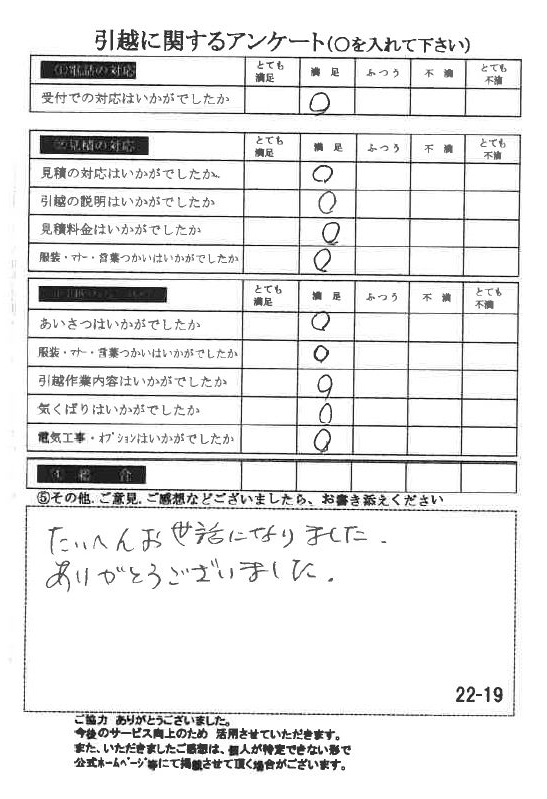 引越に関するアンケート(○を入れて下さい)
①電話の対応 とても満足 満足 ふつう 不満 とても不満
受付での対応はいかがでしたか ○
②見積の対応 とても満足 満足 ふつう 不満 とても不満
見積の対応はいかがでしたか ○
引越の説明はいかがでしたか ○
見積料金はいかがでしたか ○
服装・マナー・言葉つかいはいかがでしたか ○
とても満足 満足 ふつう 不満 とても不満
あいさつはいかがでしたか ○
服装・マナー・言葉つかいはいかがでしたか ○
引越作業内容はいかがでしたか ○
気くばりはいかがでしたか ○
電気工事・オプションはいかがでしたか ○
4. 総合
⑤その他、ご意見、ご感想などございましたら、お書き添えください
たいへんお世話になりました.
ありがとうございました.
22-19
ご協力 ありがとうございました。
今後のサービス向上のため 活用させていただきます。
また、いただきましたご感想は、個人が特定できない形で
公式ホームページ等にて掲載させて頂く場合がございます。